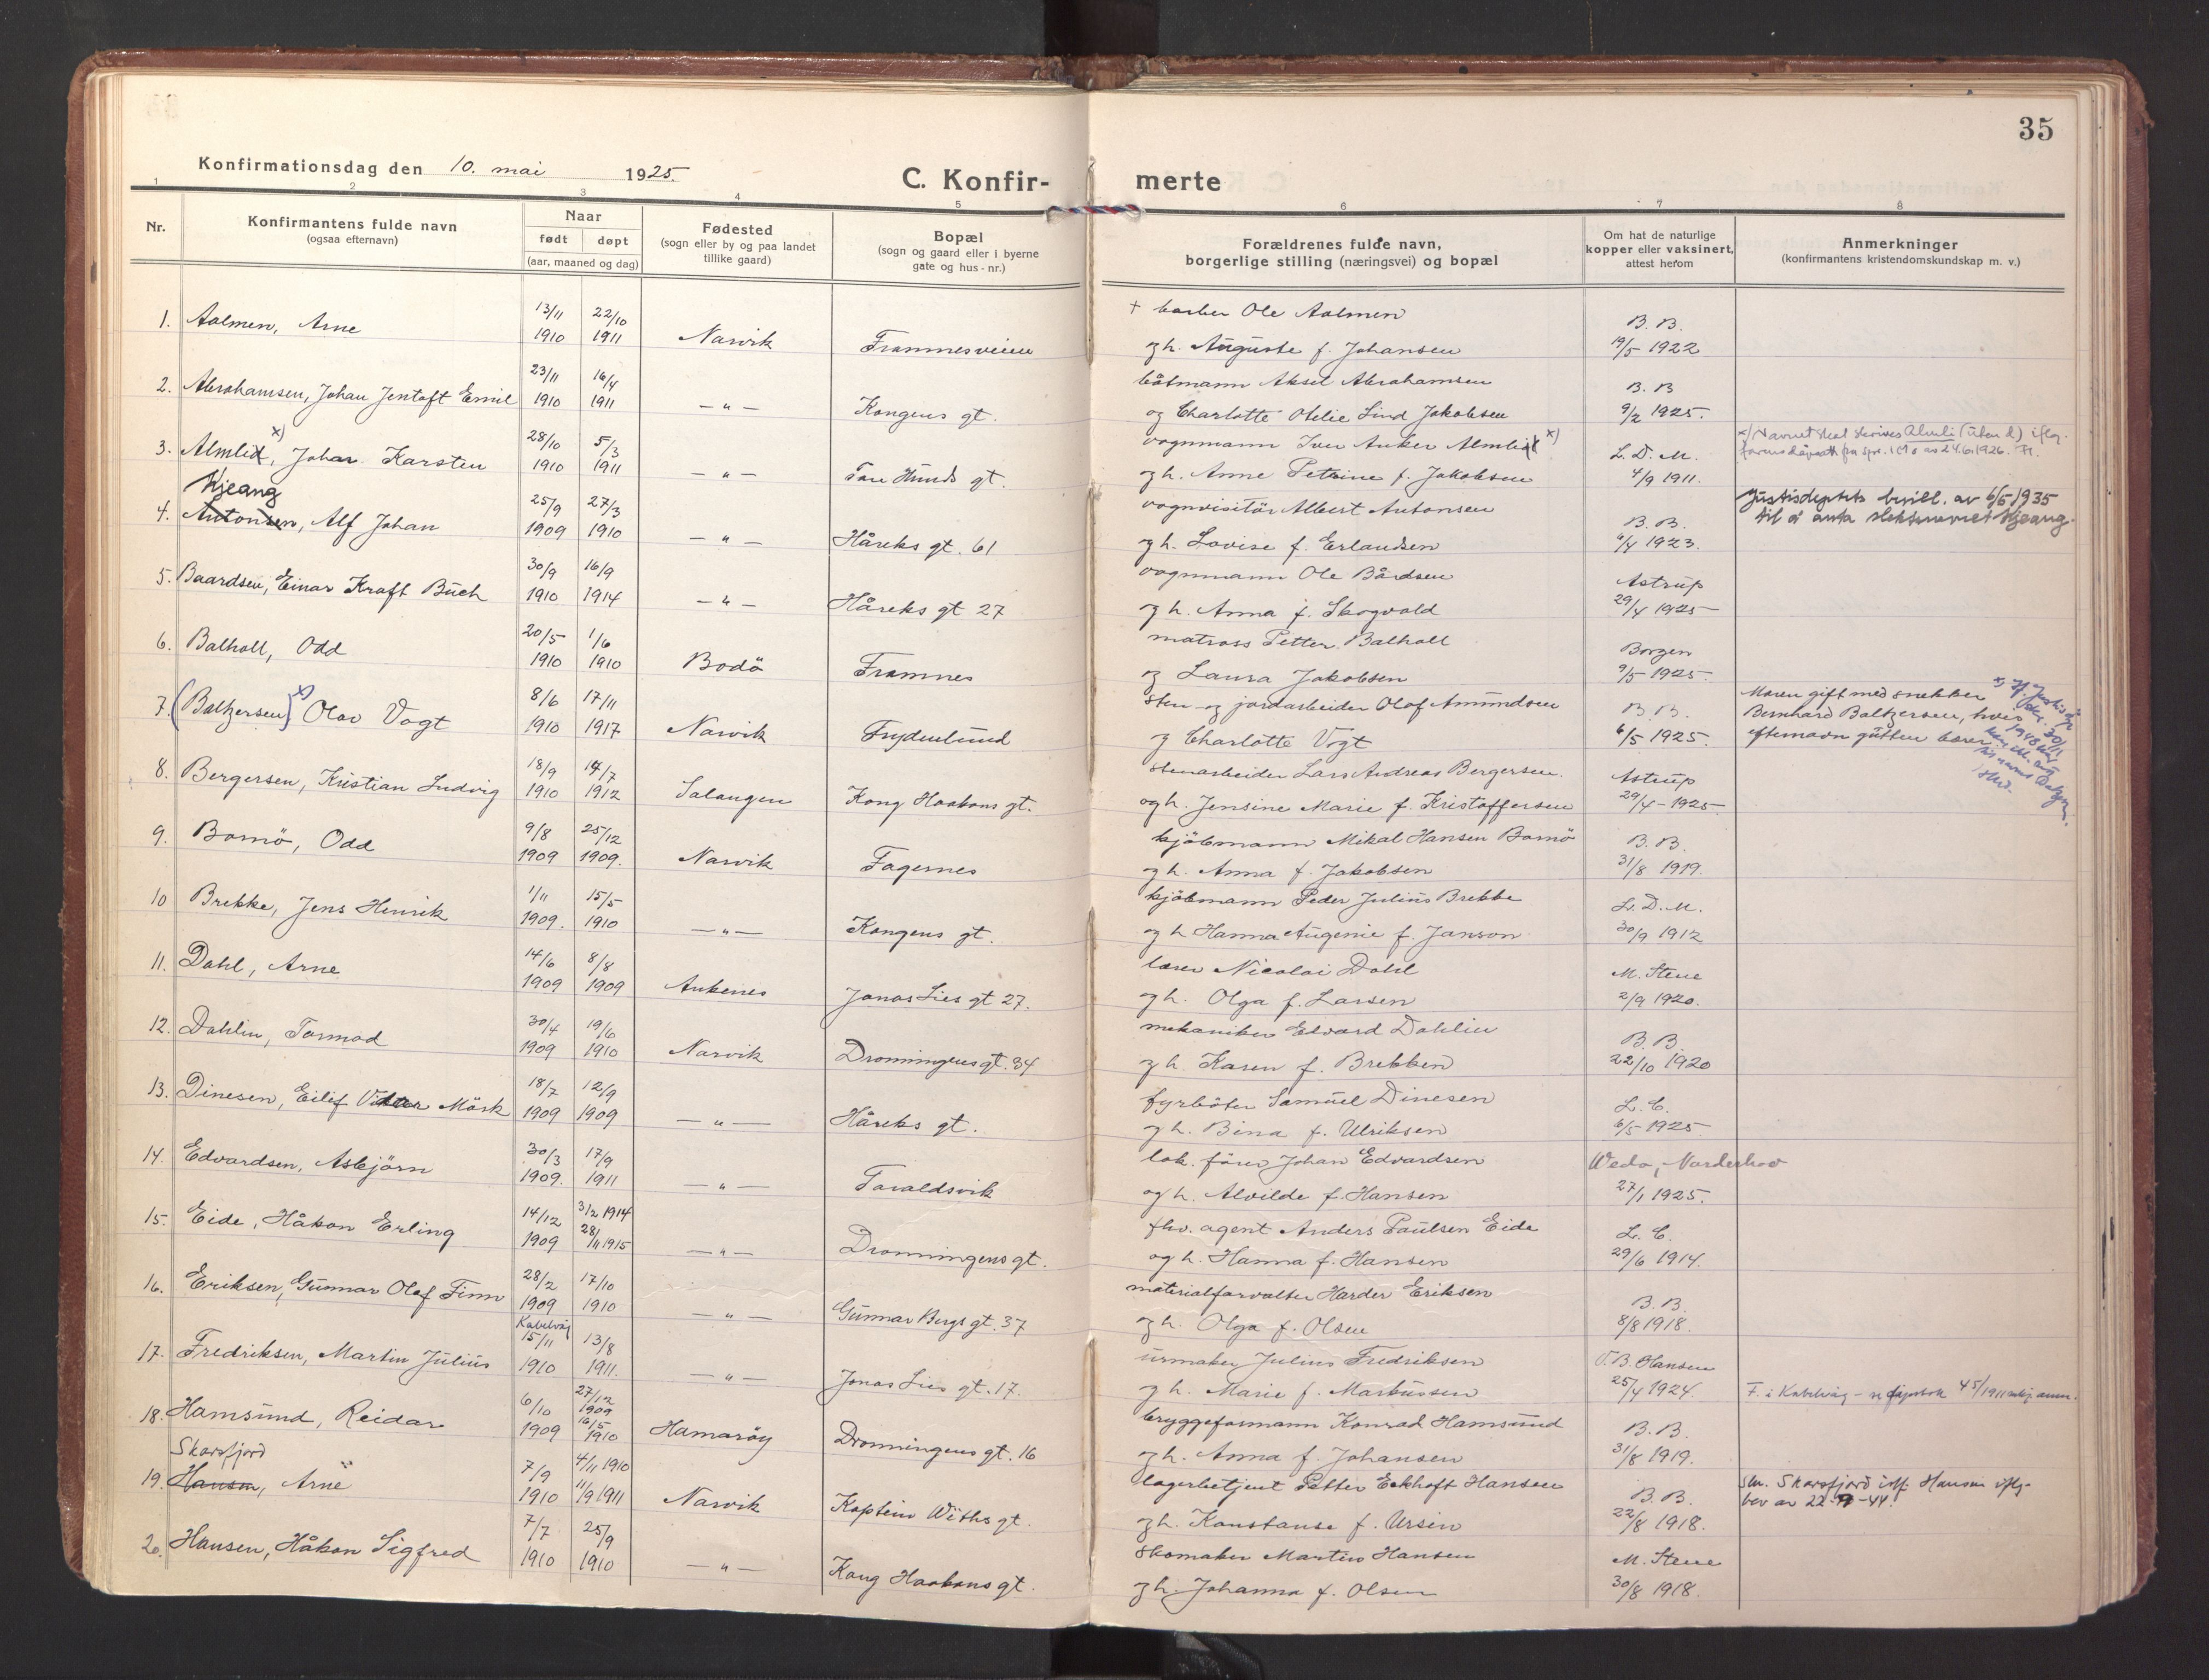 35
Konfirmationsdag den 10. mai 1925.
C. Konfir- merte
1 2 3 4 5 6 7 8
Nr.
Konfirmantens fulde navn
(ogsaa efternavn)
Naar
født døpt
(aar, maaned og dag)
Fødested
(sogn eller by og paa landet
tillike gaard)
Bopæl
(sogn og gaard eller i byerne
gate og hus-nr.)
Forældrenes fulde navn,
borgerlige stilling (næringsvei) og bopæl
Om hat de naturlige
kopper eller vaksinert,
attest herom
Anmerkninger
(konfirmantens kristendomskundskap m. v.)
1. Aalmen, Arne 13/11 1910 22/10 1911 Narvik Framnesveien + barber Ole Aalmen
og h. Auguste f. Johansen B. B. 19/5 1922
2. Abrahamsen, Johan Jentoft Emil 23/11 1910 16/4 1911 — " — Kongens gt. båtmann Aksel Abrahamsen
og Charlotte Otelie Lind Jakobsen B. B 9/2 1925.
3. Almlid x), Johan Karsten 28/10 1910 5/3 1911 — " — Tore Hunds gt. vognmann Iver Anker Almlid x)
og h. Anne Petrine f. Jakobsen L. D. M. 4/9 1911.
x) Navnet skal skrives Almli (uten d) iflg.
24.6.1926.
Hjeang
4. Antonsen, Alf Johan 25/9 1909 27/3 1910 — " — Håreks gt. 61 vognvisitör Albert Antonsen
og h. Lovise f. Erlandsen B. B. 6/4 1923.
Justisdeptets bevill. av 6/5 1935
til å anta slektsnavnet Hjeang.
5. Baardsen, Einar Kraft Buch 30/9 1910 16/9 1914 — " — Håreks gt 27 vognmann Ole Bårdsen
og h. Anna f. Skogvold Astrup 29/4 1925
6. Balholl, Odd 20/5 1910 1/6 1910 Bodö Framnes matross Petter Balholl
og Laura Jakobsen Borgen 9/5 1925
7. (Baltzersen) x) Olav Vogt 8/6 1910 17/11 1917 Narvik Frydenlund sten- og jordarbeider Olof Amundsen
og Charlotte Vogt B. B. 6/5 1925.
Moren gift med snekker
Bernhard Baltzersen, hvis
efternavn gutten bærer
8. Bergersen, Kristian Ludvig 18/9 1910 14/7 1912 Salangen Kong Haakons gt. stenarbeider Lars Andreas Bergersen.
og h. Jensine Marie f. Kristoffersen Astrup 29/4 - 1925
9. Bomö, Odd 9/8 1909 25/12 1909. Narvik Fagernes kjöbmann Mikal Hansen Bomö
og h. Anna f. Jakobsen B. B. 31/8 1919.
10 Brekke, Jens Henrik 1/11 1909. 15/5 1910 — " — Kongens gt. kjöbmann Peder Julius Brekke
og h Hanna Augenie f. Janson L. D. M. 30/9 1912
11. Dahl, Arne 14/6 1909 8/8 1909 Ankenes Jonas Lies gt 27. lærer Nicolai Dahl
og h. Olga f. Larsen M. Stene 2/9 1920.
12. Dahlin, Tormod 30/4 1909 19/6 1910 Narvik Dronningens gt. 34 mekaniker Edvard Dahlin
og h. Karen f. Brekken B. B. 22/10 1920
13. Dinesen, Eilif Viktor Mörk 18/7 1909 12/9 1909 — " — Håreks gt. fyrböter Samuel Dinesen
og h. Bina f. Ulriksen L. C. 6/5 1925
14. Edvardsen, Asbjörn 30/3 1909. 17/9 1911 — " — Taraldsvik lok. förer Johan Edvardsen
og h. Alvilde f. Hansen Wedø, - Norderhov 27/1 1925.
15. Eide, Håkon Erling 14/12 1909 3/2 1914 28/11 1915 — " — Dronningens gt. fhv. agent Anders Paulsen Eide
og h. Hanna f. Hansen L. C. 29/6 1914.
16. Eriksen, Gunnar Olaf Finn 28/2 1909 17/10 1910 — " — Gunnar Bergs gt. 37 materialforvalter Harder Eriksen
og h. Olga f. Olsen B. B. 8/8 1918.
17. Fredriksen, Martin Julius Kabelvåg 15/11 1910 13/8 1911. — " — Jonas Lies gt. 17. urmaker Julius Fredriksen
og h. Marie f. Markussen B. Hansen 25/4 1924.
F. i Kabelvåg - 45/1911
18. Hamsund, Reidar 6/10 1909 27/12 1909 16/5 1910 Hamaröy Dronningens gt. 16 bryggeformann Konrad Hamsund
og h. Anna f. Johansen B. B. 31/8 1919.
Skarsfjord
19. Hansen, Arne 7/9 1910 4/11 1910 11/9 1911 Narvik Kaptein Withs gt. lagerbetjent Petter Eckhoft Hansen
og h. Konstanse f. Ursin B. B. 22/8 1918.
Skarsfjord istf. Hansen iflg.
bev av 22-9-44.
20. Hansen, Håkon Sigfred 7/7 1910 25/9 1910 — " — Kong Haakons gt. skomaker Martin Hansen
og h. Johanna f. Olsen M. Stene 30/8 1918.